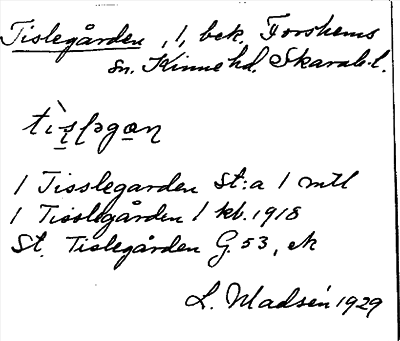 Tislegården, 1, bek. Forshems
sn. Kinne hd. Skarab. l.
1 Tisslegarden St:a 1 mtl
1 Tisslegården 1 kb. 1918
St. Tislegården G. 53, ek
L. Madsén 1929